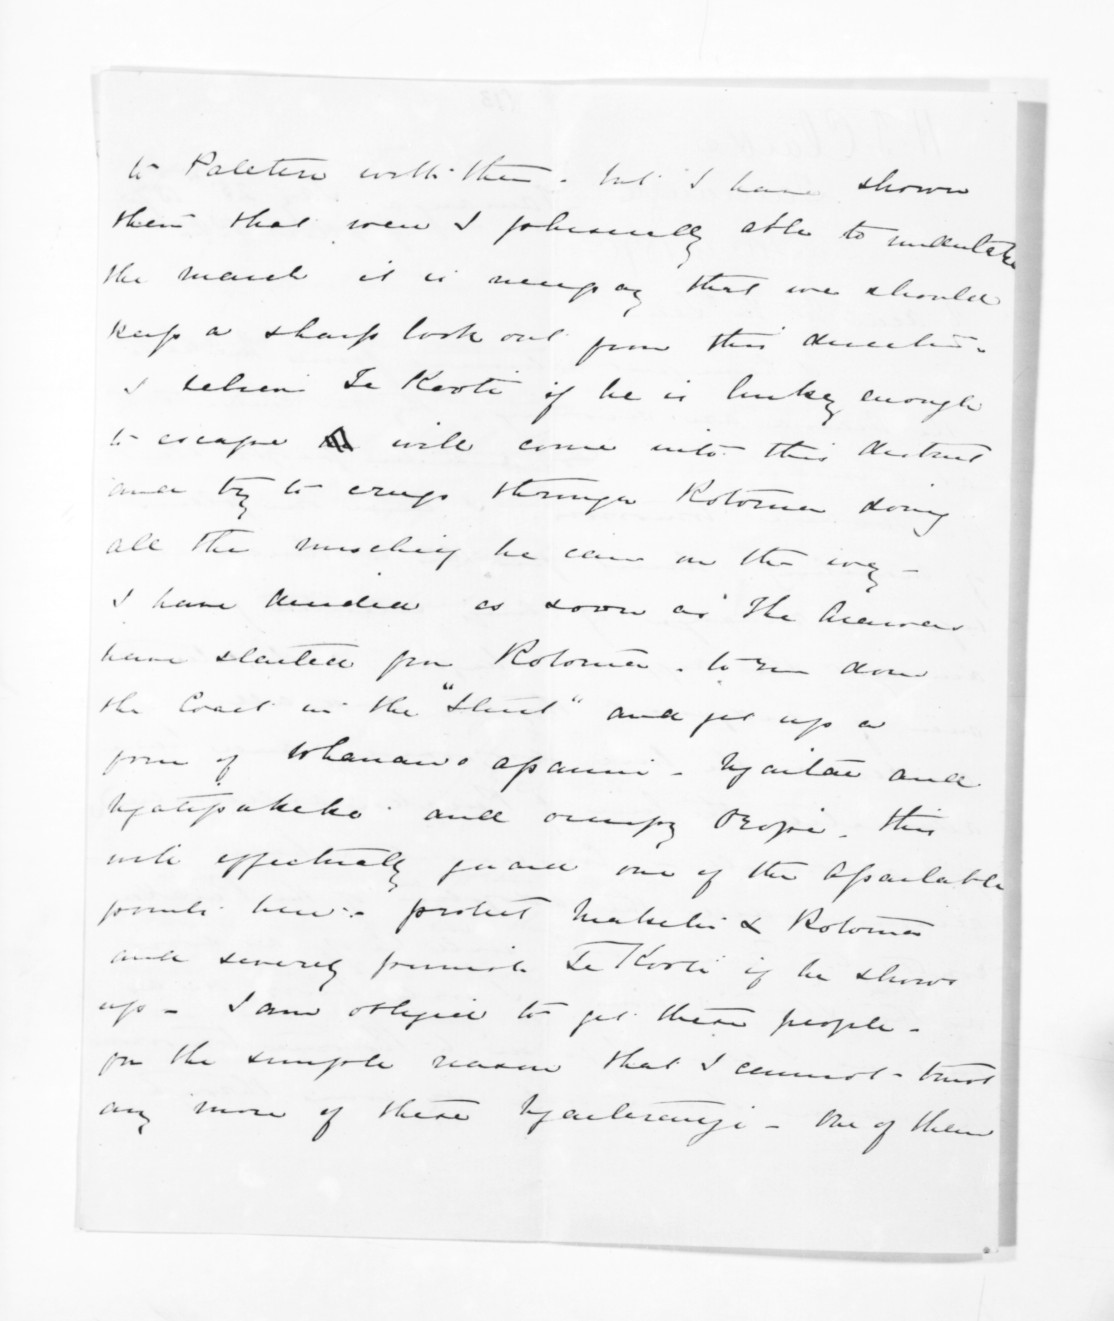 to Paletere with them. but I have shown
them that were I physically able to undertake
the march it is necessary that we should
keep a sharp look out from this direction.
I believe Te Kooti if he is lucky enough
to escape will come into this district
and try to creep through Rotoma doing
all the mischief he can on the way –
I have decided as soon as the Arawas
have started for Rotoma. to run down
the Coast in the "Sturt" and get up a
force of Whanau apanui – Ngaitai and
Ngatipukeko and occupy Ohope. this
will effectually guard one of the assailable
points here – protect Maketu & Rotoma
and severely punish Te Kooti if he shows
up – I am obliged to get these people –
for the simple reason that I cannot trust
any more of these Ngaiterangi – One of them